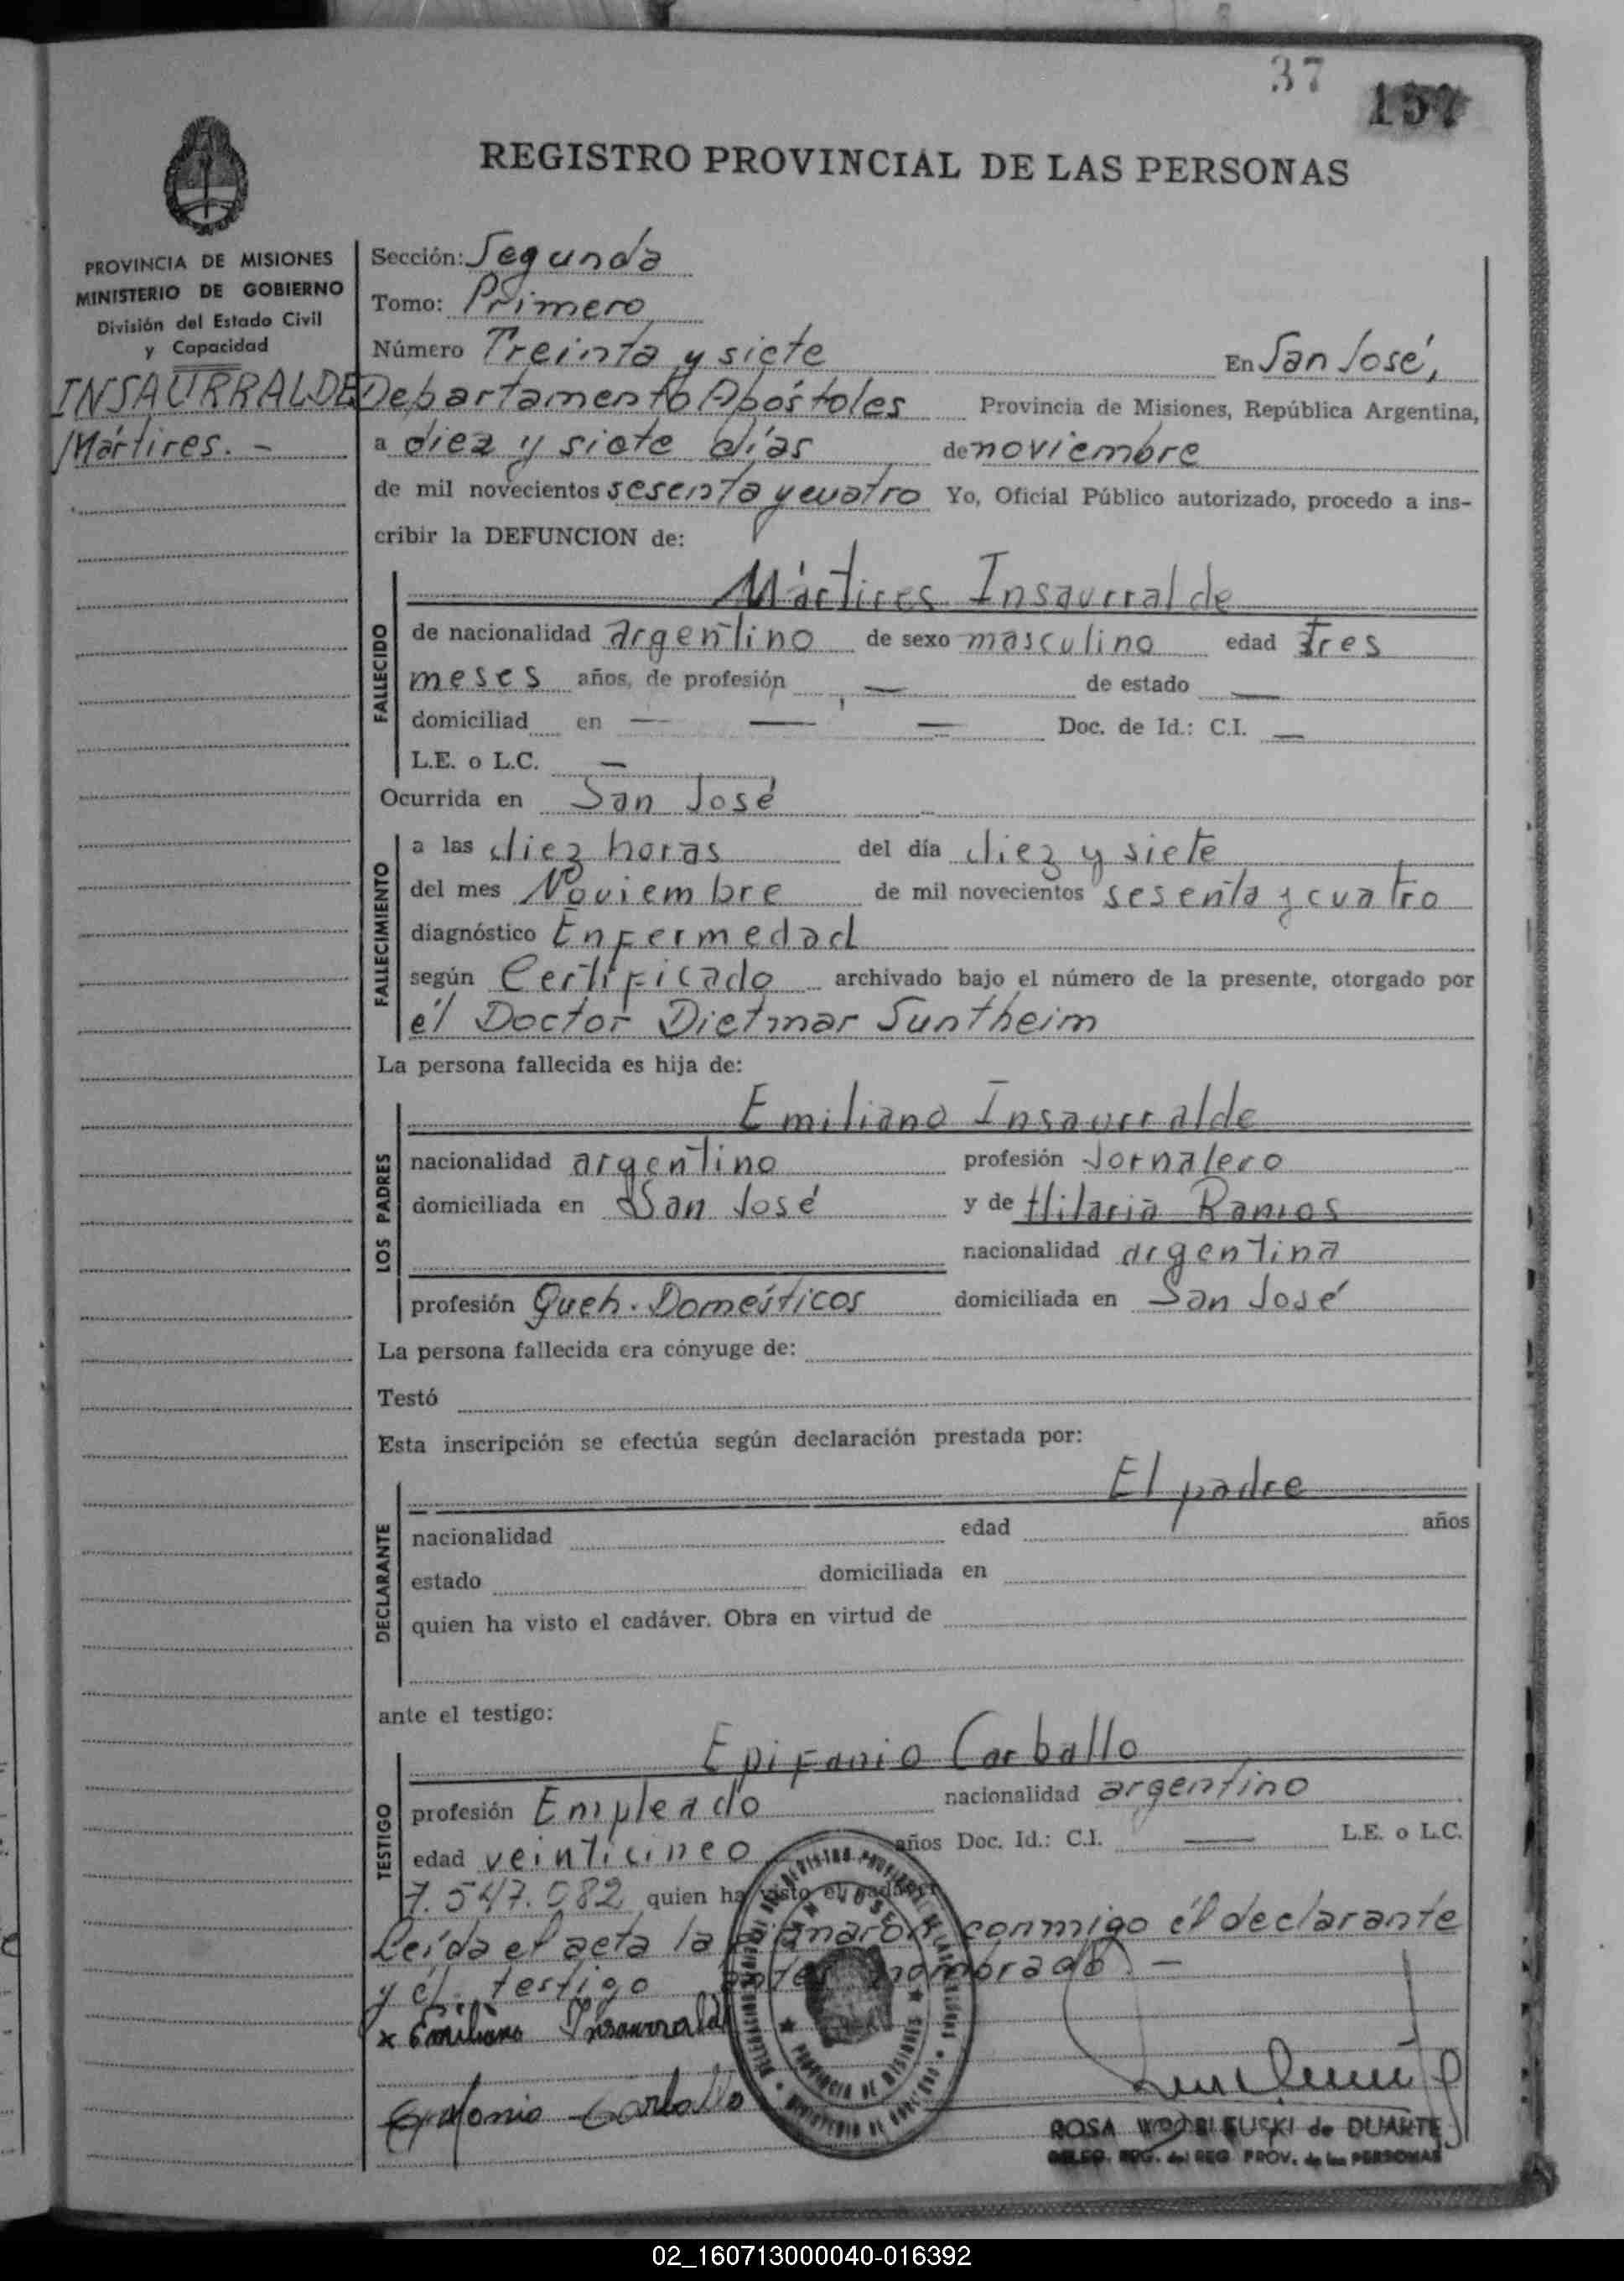 37 157
REGISTRO PROVINCIAL DE LAS PERSONAS
PROVINCIA DE MISIONES
MINISTERIO DE GOBIERNO
División del Estado Civil
y Capacidad
INSAURRALDE
Mártires. -
Sección: Segunda
Tomo: Primero
Número Treinta y siete En San José,
Departamento Apóstoles Provincia de Misiones, República Argentina,
a diez y siete días de noviembre
de mil novecientos sesenta y cuatro Yo, Oficial Público autorizado, procedo a ins-
cribir la DEFUNCION de:
Mártires Insaurralde
FALLECIDO
de nacionalidad argentino de sexo masculino edad tres
meses años, de profesión — de estado —
domiciliad en — — — Doc. de Id.: C.I. —
L.E. o L.C. —
Ocurrida en San José
FALLECIMIENTO
a las diez horas del día diez y siete
del mes Noviembre de mil novecientos sesenta y cuatro
diagnóstico Enfermedad
según Certificado archivado bajo el número de la presente, otorgado por
él Doctor Dietmar Suntheim
La persona fallecida es hija de:
Emiliano Insaurralde
LOS PADRES
nacionalidad argentino profesión Jornalero
domiciliada en San José y de Hilaria Ramos
nacionalidad argentina
profesión Queh. Domésticos domiciliada en San José
La persona fallecida era cónyuge de:
Testó
Esta inscripción se efectúa según declaración prestada por:
El padre
DECLARANTE
nacionalidad edad años
estado domiciliada en
quien ha visto el cadáver. Obra en virtud de
ante el testigo:
Epifanio Carballo
TESTIGO
profesión Empleado nacionalidad argentino
edad veinticinco años Doc. Id.: C.I. — L.E. o L.C.
7.547.082 quien ha visto el cadáver
Leída el acta la firmaron conmigo él declarante
y él testigo antes nombrado. -
x Emiliano Insaurralde
Epifanio Carballo
SAN JOSE
PROVINCIA DE MISIONES
ROSA de DUARTE
REG. PROV. de las PERSONAS
02_160713000040-016392